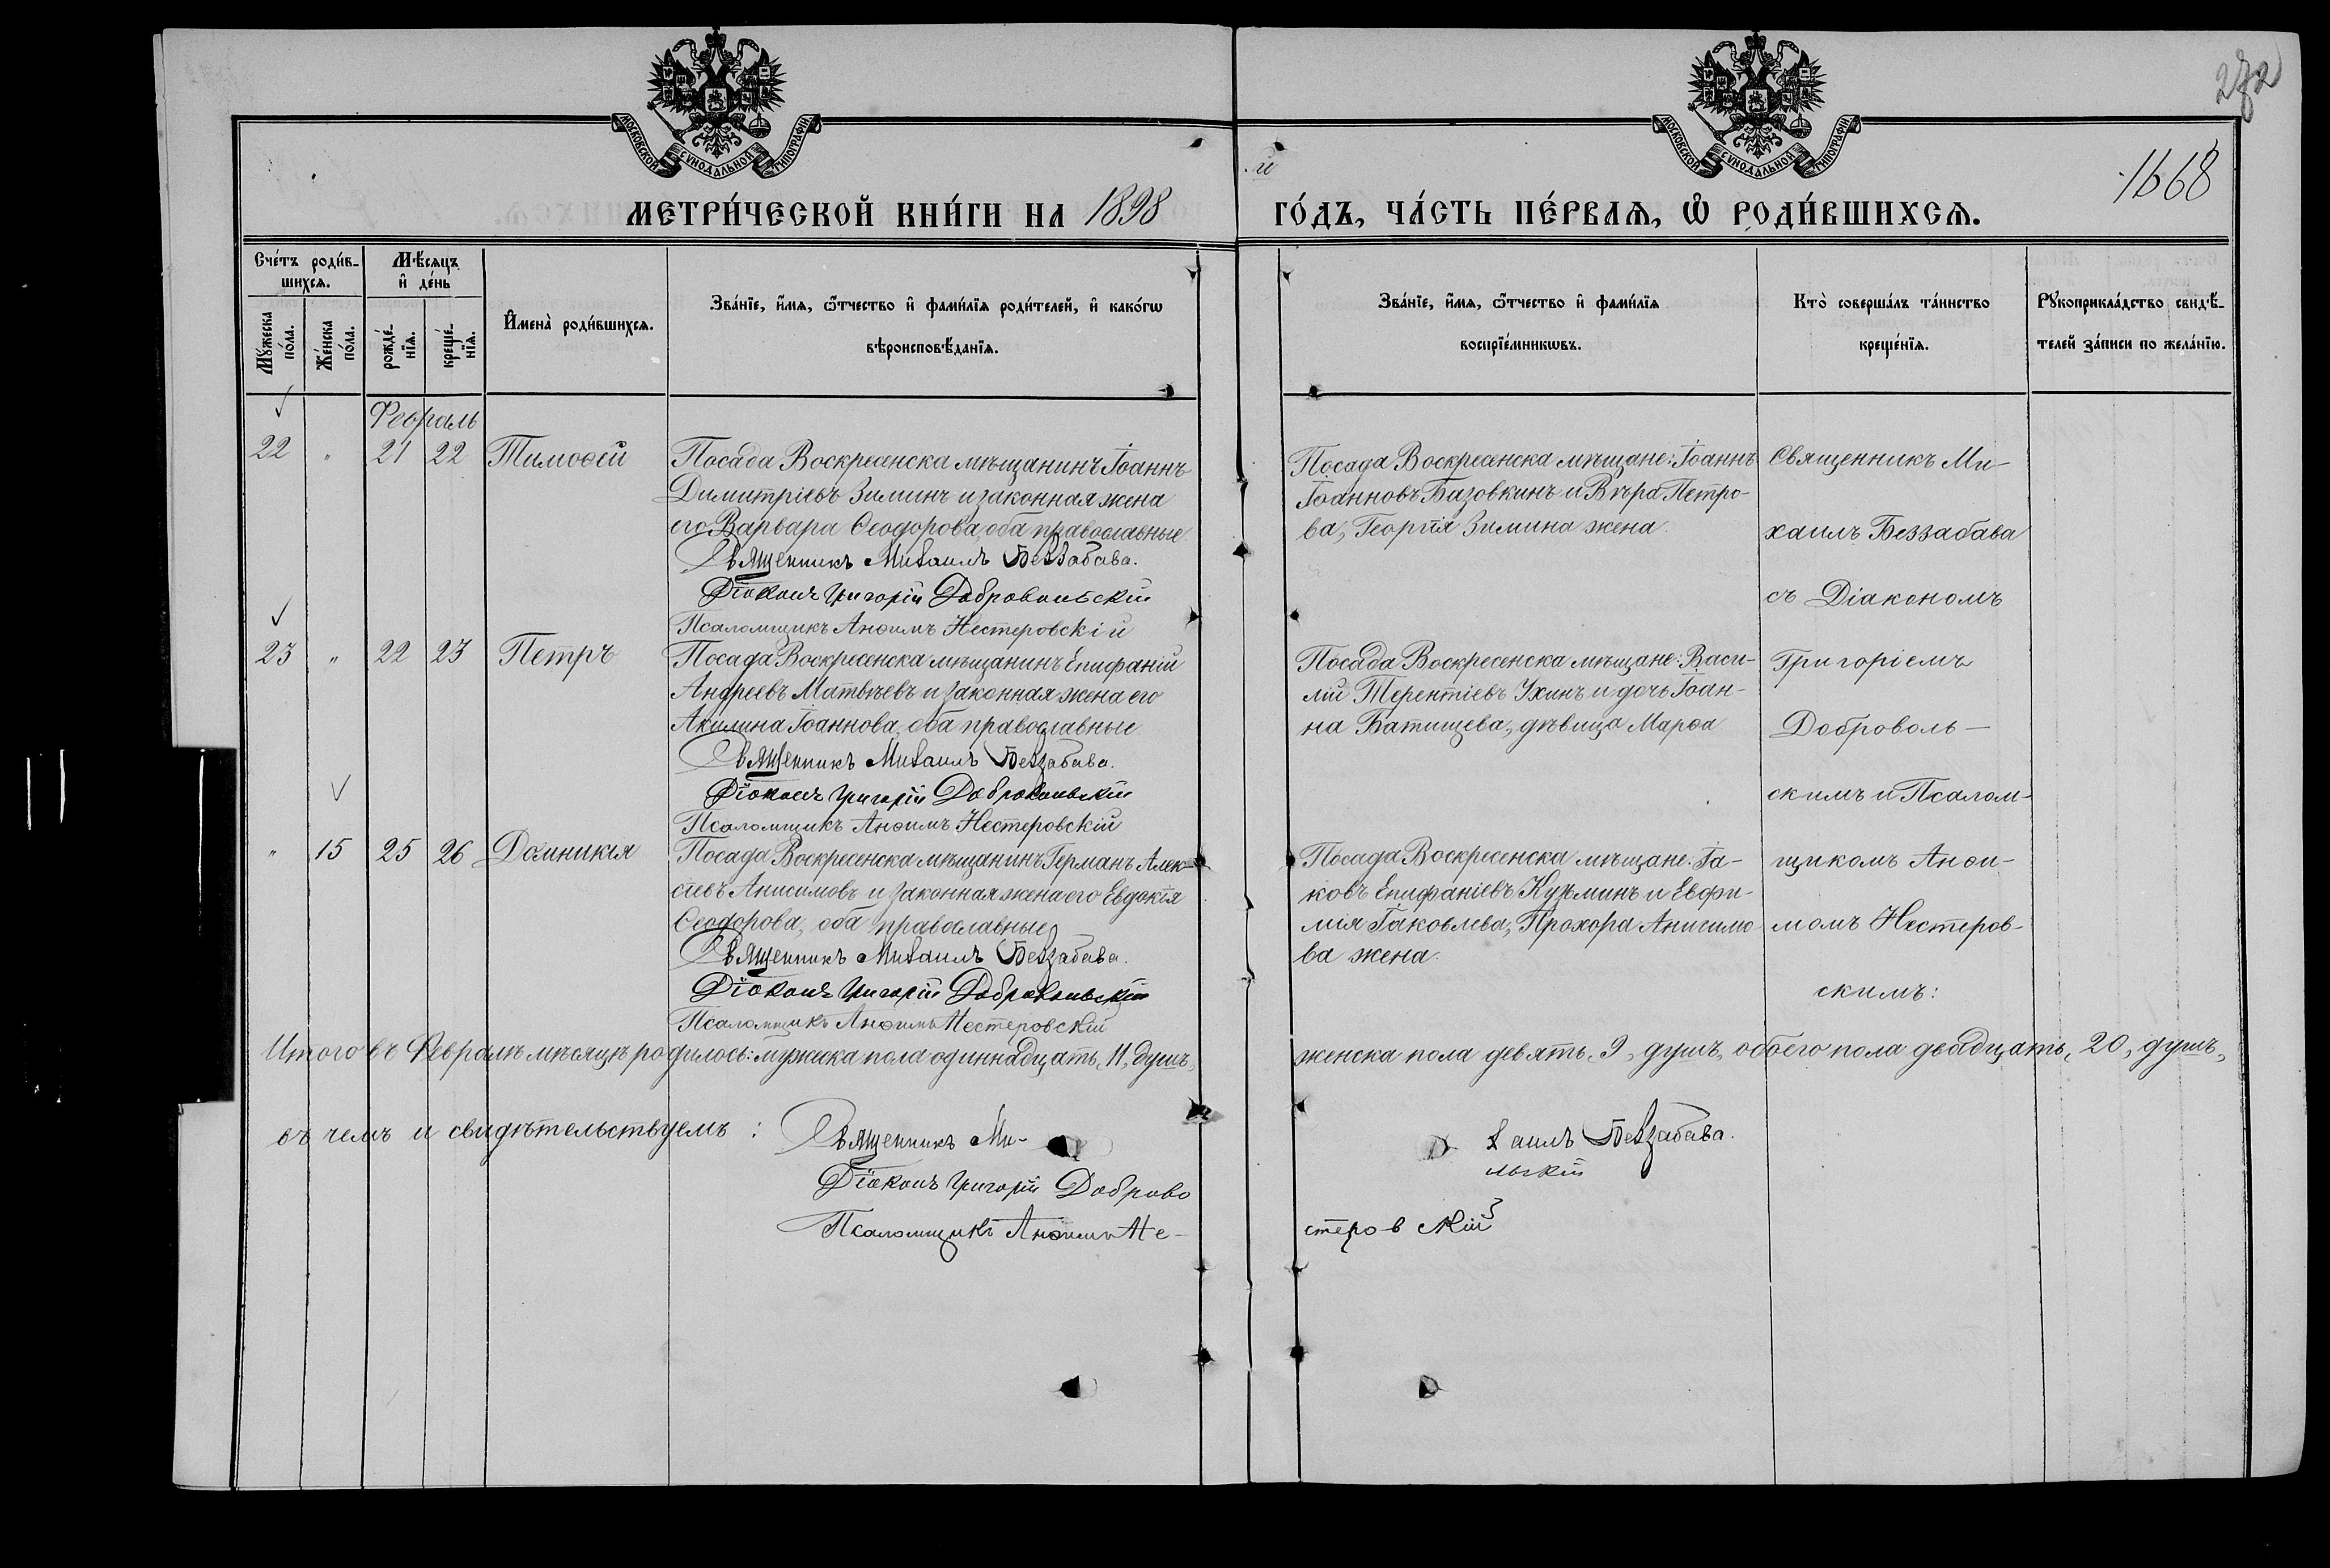 272
1668
МОСКОВСКОЙ СѴНОДАЛЬНОЙ ТИПОГРАФІИ
МОСКОВСКОЙ СѴНОДАЛЬНОЙ ТИПОГРАФІИ
МЕТРИ́ЧЕСКОЙ КНИ́ГИ НА 1898 й ГО́ДЪ, ЧА́СТЬ ПЕ́РВАѦ, Ѿ РОДИ́ВШИХСѦ.
Сче́тъ роди́в-
шихсѧ.
Мꙋ́жеска по́ла.
Же́нска по́ла.
Мѣ́сѧцъ и҆ де́нь
рожде́-нїѧ.
креще́-нїѧ.
И҆мена̀ роди́вшихсѧ.
Зва́нїе, и҆́мѧ, ѻ҆́тчество и҆ фами́лїѧ роди́телей, и҆ како́гѡ
вѣроисповѣ́данїѧ.
Зва́нїе, и҆́мѧ, ѻ҆́тчество и҆ фами́лїѧ
воспрїе́мникѡвъ.
Кто̀ соверша́лъ та́инство
креще́нїѧ.
Рꙋкоприкла́дство свидѣ́-
телей за́писи по жела́нїю.
Февраль
22 " 21 22 Тимоѳей
Посада Воскресенска мѣщанинъ Іоаннъ
Димитріевъ Зиминъ и законная жена
его Варвара Ѳеодорова, оба православные
Священникъ Михаилъ Беззабава.
Діаконъ Григорій Добровольскій
Псаломщикъ Анѳимъ Нестеровскій
Посада Воскресенска мѣщане: Іоаннъ
Іоанновъ Базовкинъ и Вѣра Петро-
ва, Георгія Зимина жена
23 " 22 23 Петръ
Посада Воскресенска мѣщанинъ Епифаній
Андреевъ Матвѣевъ и законная жена его
Акилина Іоаннова, оба православные
Священникъ Михаилъ Беззабава.
Діаконъ Григорій Добровольскій
Псаломщикъ Анѳимъ Нестеровскій
Посада Воскресенска мѣщане: Васи-
лій Терентіевъ Ухинъ и дочь Іоан-
на Батищева, дѣвица Марѳа
" 15 25 26 Домникія
Посада Воскресенска мѣщанинъ Германъ Алек-
сіевъ Анисимовъ и законная жена его Евдокія
Ѳеодорова, оба православные
Священникъ Михаилъ Беззабава.
Діаконъ Григорій Добровольскій
Псаломщикъ Анѳимъ Нестеровскій
Посада Воскресенска мѣщане: Іа-
ковъ Епифаніевъ Кузьминъ и Евфи-
мія Іаковлева, Прохора Анисимо-
ва жена.
Священникъ Ми-
хаилъ Беззабава
съ Діакономъ
Григоріемъ
Доброволь-
скимъ и Псалом-
щикомъ Анѳи-
момъ Нестеров-
скимъ:
Итого въ Февралѣ мѣсяцѣ родилось: мужска пола одиннадцать, 11, душъ, женска пола девять, 9, душъ, обоего пола двадцать, 20, душъ,
въ чемъ и свидѣтельствуемъ: Священникъ Ми- хаилъ Беззабава.
Діаконъ Григорій Доброво льскій
Псаломщикъ Анѳимъ Не- стеровскій